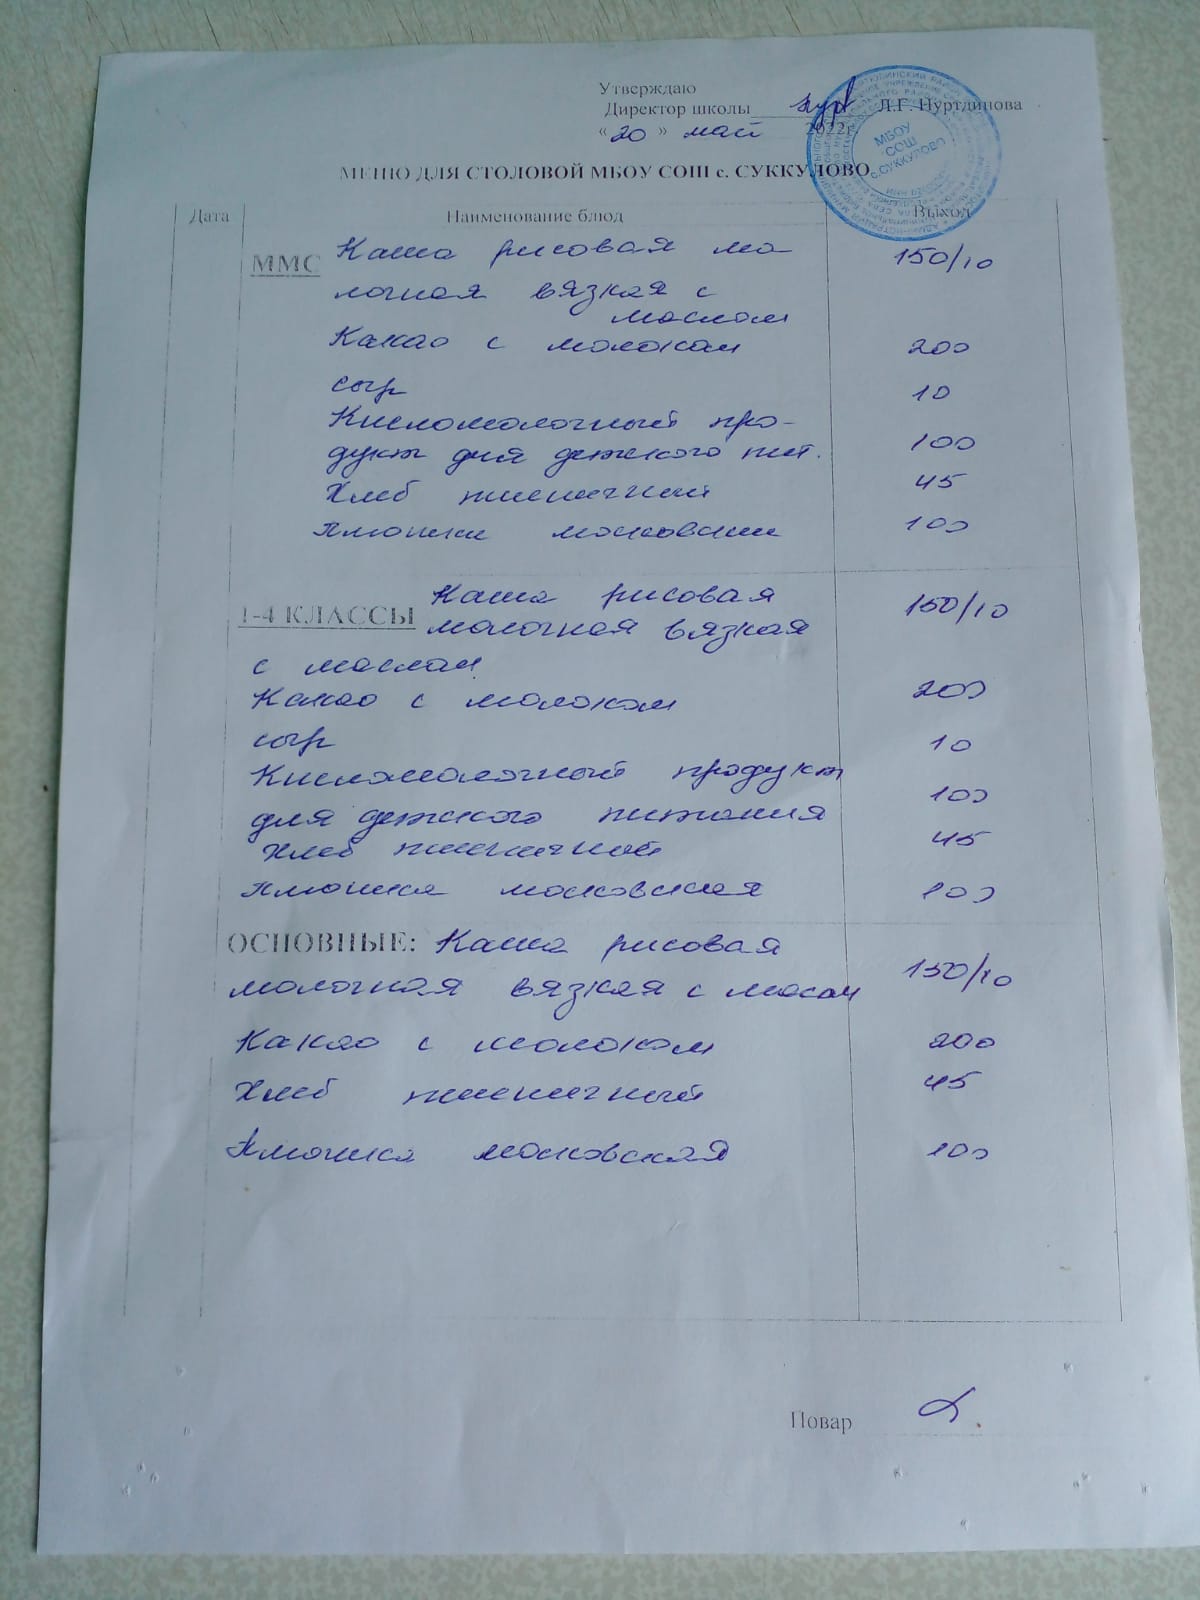 Утверждаю
Директор школы Л.Г. Нуртдинова
« 20 » май 2022г
МЕНЮ ДЛЯ СТОЛОВОЙ МБОУ СОШ с. СУККУЛОВО
Дата Наименование блюд Выход
МБОУ
СОШ
с.СУККУЛОВО
ММС Каша рисовая мо- 150/10
лочная вязкая с
маслом
Какао с молоком 200
сыр 10
Кисломолочный про-
дукт для детского пит. 100
Хлеб пшеничный 45
Плюшки московские 100
1-4 КЛАССЫ Каша рисовая 150/10
молочная вязкая
с маслом
Какао с молоком 200
сыр 10
Кисломолочный продукт
для детского питания 100
Хлеб пшеничный 45
Плюшка московская 100
ОСНОВНЫЕ: Каша рисовая
молочная вязкая с масом 150/10
Какао с молоком 200
Хлеб пшеничный 45
Плюшка московская 100
Повар